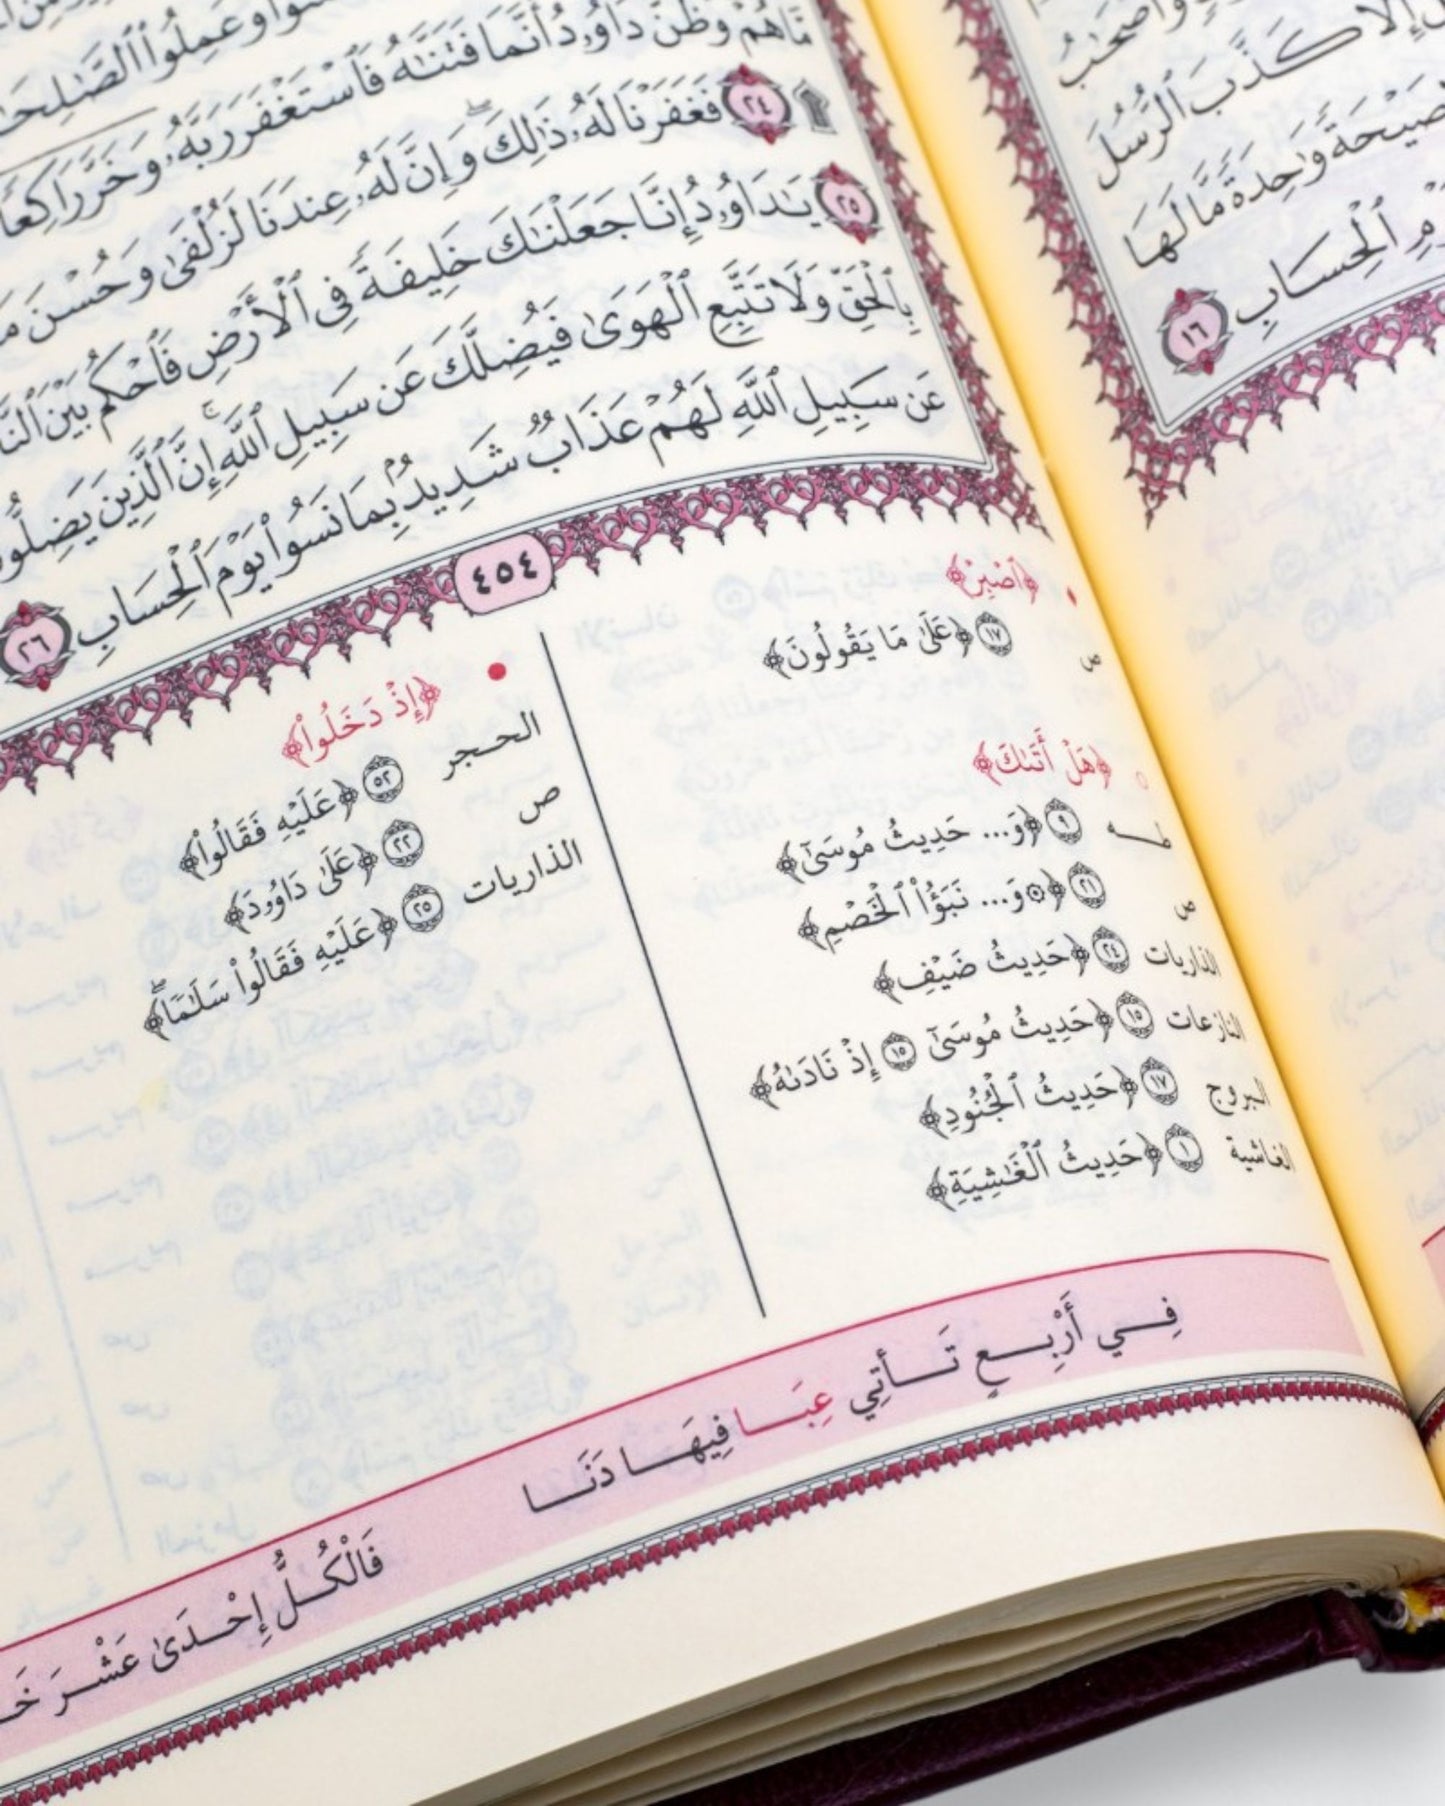 وَأَصْحَٰبُ
إِلَّا كَذَّبَ ٱلرُّسُلَ
صَيْحَةً وَٰحِدَةً مَّا لَهَا
ٱلْحِسَابِ ١٦
وَعَمِلُوا۟ ٱلصَّٰلِحَٰتِ
مَّا هُمْ وَظَنَّ دَاوُۥدُ أَنَّمَا فَتَنَّٰهُ فَٱسْتَغْفَرَ رَبَّهُۥ وَخَرَّ رَاكِعًا
۩ ٢٤ فَغَفَرْنَا لَهُۥ ذَٰلِكَۖ وَإِنَّ لَهُۥ عِندَنَا لَزُلْفَىٰ وَحُسْنَ
٢٥ يَٰدَاوُۥدُ إِنَّا جَعَلْنَٰكَ خَلِيفَةً فِى ٱلْأَرْضِ فَٱحْكُم بَيْنَ
بِٱلْحَقِّ وَلَا تَتَّبِعِ ٱلْهَوَىٰ فَيُضِلَّكَ عَن سَبِيلِ ٱللَّهِۚ إِنَّ ٱلَّذِينَ يَضِلُّونَ
عَن سَبِيلِ ٱللَّهِ لَهُمْ عَذَابٌ شَدِيدٌۢ بِمَا نَسُوا۟ يَوْمَ ٱلْحِسَابِ ٢٦
٤٥٤
﴿ٱصْبِرْ﴾
ص ١٧ ﴿عَلَىٰ مَا يَقُولُونَ﴾
﴿هَلْ أَتَىٰكَ﴾
طه ٩ ﴿وَ... حَدِيثُ مُوسَىٰٓ﴾
ص ٢١ ﴿۞وَ... نَبَؤُا۟ ٱلْخَصْمِ﴾
الذاريات ٢٤ ﴿حَدِيثُ ضَيْفِ﴾
النازعات ١٥ ﴿حَدِيثُ مُوسَىٰٓ ١٥ إِذْ نَادَىٰهُ﴾
البروج ١٧ ﴿حَدِيثُ ٱلْجُنُودِ﴾
الغاشية ١ ﴿حَدِيثُ ٱلْغَٰشِيَةِ﴾
• ﴿إِذْ دَخَلُوا۟﴾
الحجر ٥٢ ﴿عَلَيْهِ فَقَالُوا۟﴾
ص ٢٢ ﴿عَلَىٰ دَاوُۥدَ﴾
الذاريات ٢٥ ﴿عَلَيْهِ فَقَالُوا۟ سَلَٰمًاۖ﴾
فِي أَرْبِعٍ تَأْتِي عِبَا فِيهَا دَنَا
فَالْكُلُّ إِحْدَىٰ عَشْرَ